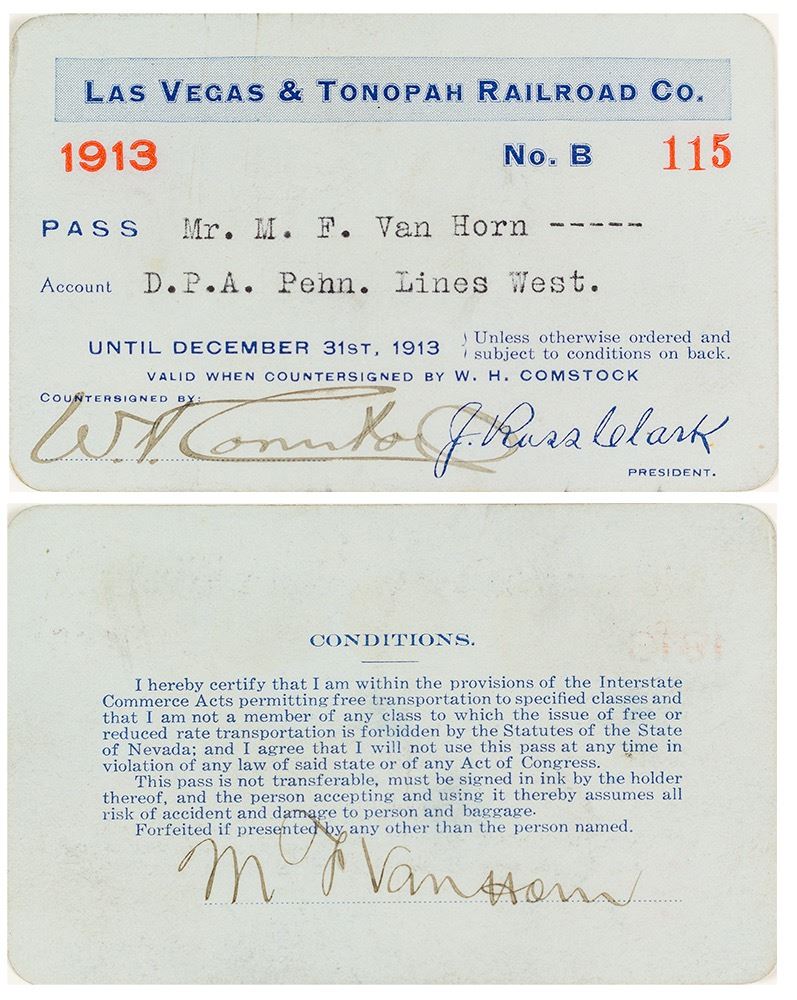 LAS VEGAS & TONOPAH RAILROAD CO.
1913 No. B 115
PASS Mr. M. F. Van Horn -----
Account D.P.A. Penn. Lines West.
UNTIL DECEMBER 31ST, 1913 } Unless otherwise ordered and
subject to conditions on back.
VALID WHEN COUNTERSIGNED BY W. H. COMSTOCK
COUNTERSIGNED BY:
W. H. Comstock J. Ross Clark
PRESIDENT.
CONDITIONS.
I hereby certify that I am within the provisions of the Interstate
Commerce Acts permitting free transportation to specified classes and
that I am not a member of any class to which the issue of free or
reduced rate transportation is forbidden by the Statutes of the State
of Nevada; and I agree that I will not use this pass at any time in
violation of any law of said state or of any Act of Congress.
This pass is not transferable, must be signed in ink by the holder
thereof, and the person accepting and using it thereby assumes all
risk of accident and damage to person and baggage.
Forfeited if presented by any other than the person named.
M F Van Horn